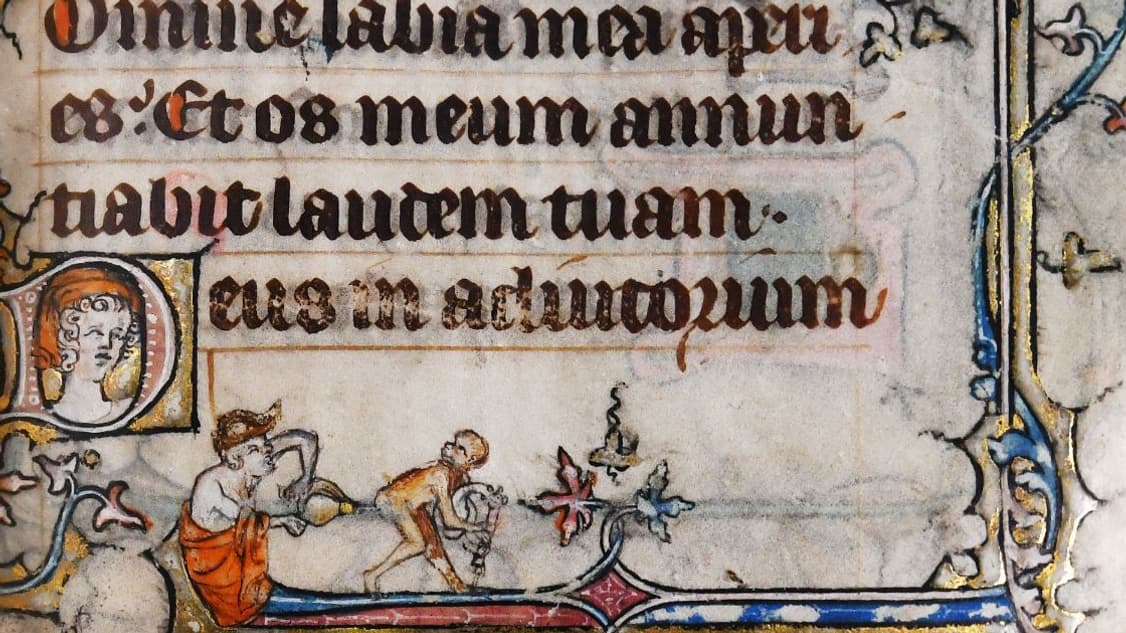 Omine labia mea aperi
es: Et os meum annun
tiabit laudem tuam.
Deus in adiutorium